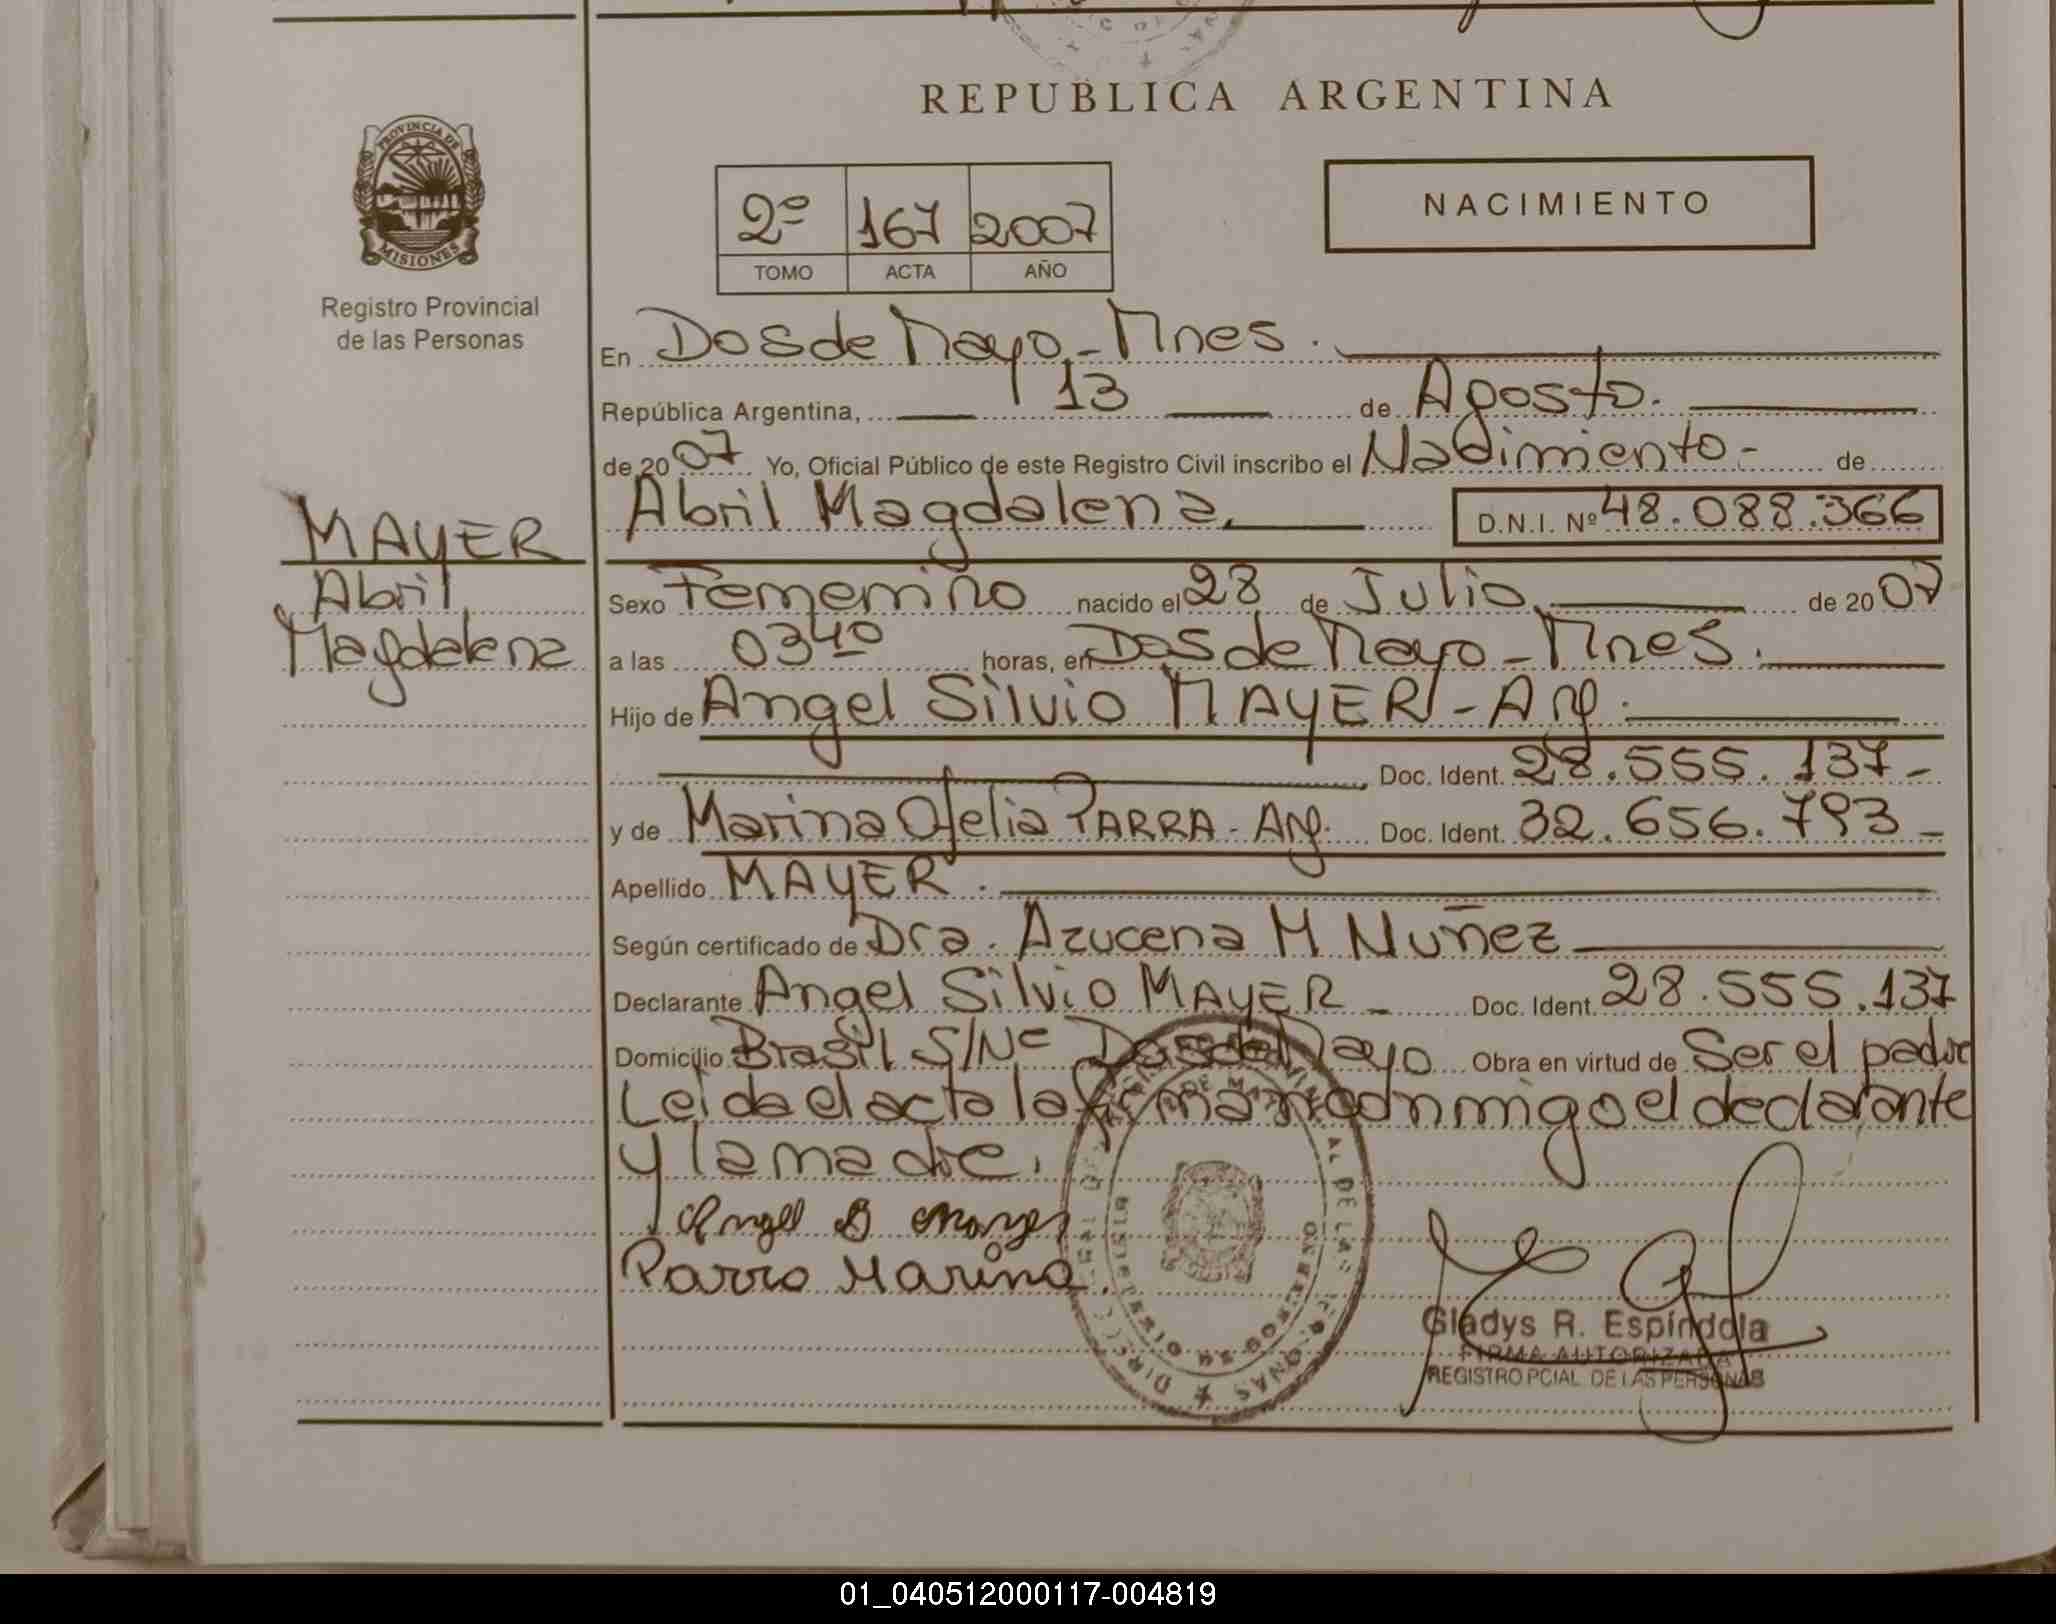 REPUBLICA ARGENTINA
PROVINCIA DE
MISIONES
Registro Provincial
de las Personas
2º 167 2007
TOMO ACTA AÑO
NACIMIENTO
En Dos de Mayo - Mnes.
República Argentina, 13 de Agosto.
de 2007 Yo, Oficial Público de este Registro Civil inscribo el Nacimiento - de
MAYER
Abril
Magdalena
Abril Magdalena. D.N.I. Nº 48.088.366
Sexo Femenino nacido el 28 de Julio de 2007
a las 03 40 horas, en Dos de Mayo - Mnes.
Hijo de Angel Silvio MAYER - Arg.
Doc. Ident. 28.555.137 -
y de Marina Ofelia PARRA - Arg. Doc. Ident. 32.656.793 -
Apellido MAYER.
Según certificado de Dra. Azucena M Nuñez
Declarante Angel Silvio MAYER - Doc. Ident. 28.555.137
Domicilio Brasil S/Nº Dos de Mayo Obra en virtud de Ser el padre
Leida el acta la firman conmigo el declarante
y la madre.
Angel S Mayer
Parra Marina.
Gladys R. Espíndola
FIRMA AUTORIZADA
REGISTRO PCIAL DE LAS PERSONAS
01_040512000117-004819